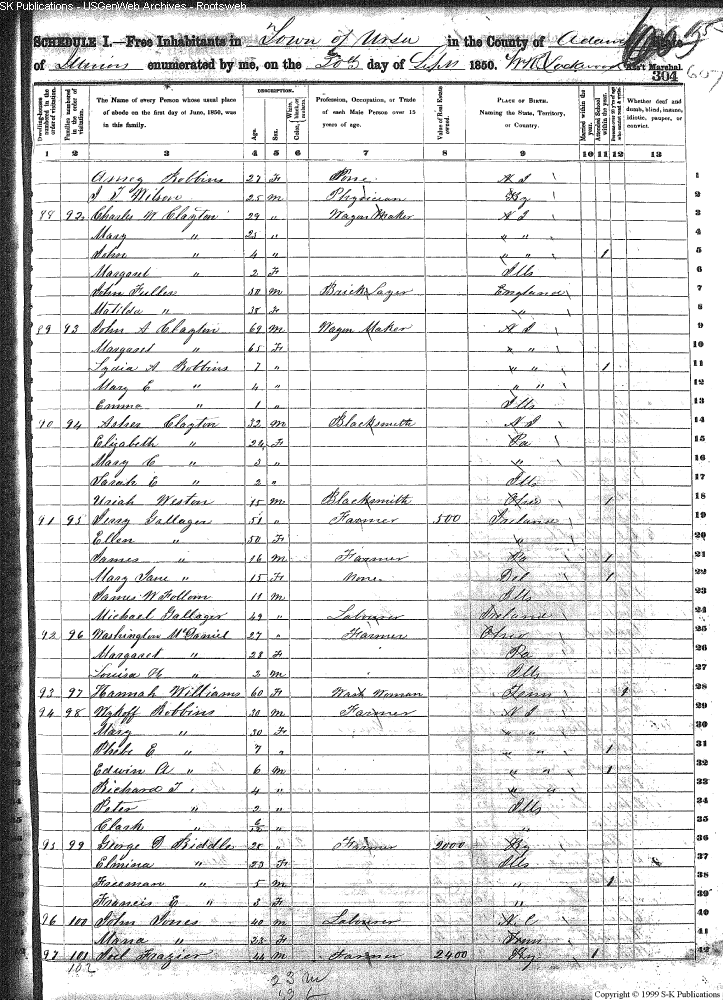 SK Publications - USGenWeb Archives - Rootsweb
SCHEDULE I.—Free Inhabitants in Town of Ursa in the County of Adams State
of Illinois enumerated by me, on the 20th day of Sept 1850. Wm Lockwood Ass't Marshal.
304
607
Dwelling-houses numbered in the order of visitation.
Families numbered in the order of visitation.
The Name of every Person whose usual place of abode on the first day of June, 1850, was in this family.
DESCRIPTION.
Age.
Sex.
Color, White, black, or mulatto.
Profession, Occupation, or Trade of each Male Person over 15 years of age.
Value of Real Estate owned.
PLACE OF BIRTH. Naming the State, Territory, or Country.
Married within the year.
Attended School within the year.
Persons over 20 y'rs of age who cannot read & write.
Whether deaf and dumb, blind, insane, idiotic, pauper, or convict.
1 2 3 4 5 6 7 8 9 10 11 12 13
Robbins 27 F None N J 1
J T Wilson 25 m Physician Ky 2
88 92 Charles W Clayton 29 " Wagon Maker N J 3
Mary " 25 " " " 4
John " 4 " " " 1 5
Margaret " 2 F Ills 6
John Fuller 50 m Brick Layer England 7
Matilda " 38 F " 8
89 93 John A Clayton 69 m Wagon Maker N J 9
Margaret " 65 F " " 10
Lydia A Robbins 7 " " " 1 11
Mary E " 4 " " " 12
Emma " 1 " Ills 13
90 94 Asher Clayton 32 m Blacksmith N J 14
Elizabeth " 24 F Pa 15
Mary C " 3 " " 16
Sarah E " 2 " Ills 17
Uriah Weston 15 m Blacksmith Ohio 1 18
91 95 Gallager 51 " Farmer 500 Ireland 19
Ellen " 50 F " 20
James " 16 m Farmer Pa 1 21
Mary Jane " 15 F None Del 1 22
James W Follom 11 m Ills 23
Michael Gallager 49 " Labourer Ireland 24
92 96 Washington McDaniel 27 " Farmer Ohio 25
Margaret " 28 F Pa 26
Louisa H " 2 m Ills 27
93 97 Hannah Williams 60 F Wash Woman Tenn 1 28
94 98 Wykoff Robbins 30 m Farmer N J 29
Mary " 30 F " 30
Phebe E " 7 " " " 1 31
Edwin A " 6 m " " 1 32
Richard T " 4 " " " 33
Peter " 2 " Ills 34
Clark " 6/12 " " 35
95 99 George D Biddle 28 " Farmer 2000 Ky 36
Elmina " 23 F Ills 37
Freeman " 5 m " 1 38
Francis E " 3 F " 39
96 100 John Jones 40 m Labourer N C 40
Maria " 23 F Tenn 41
97 101 Joel Frazier 44 m Farmer 2400 Ky 1 42
102
23 m
Copyright © 1999 S-K Publications